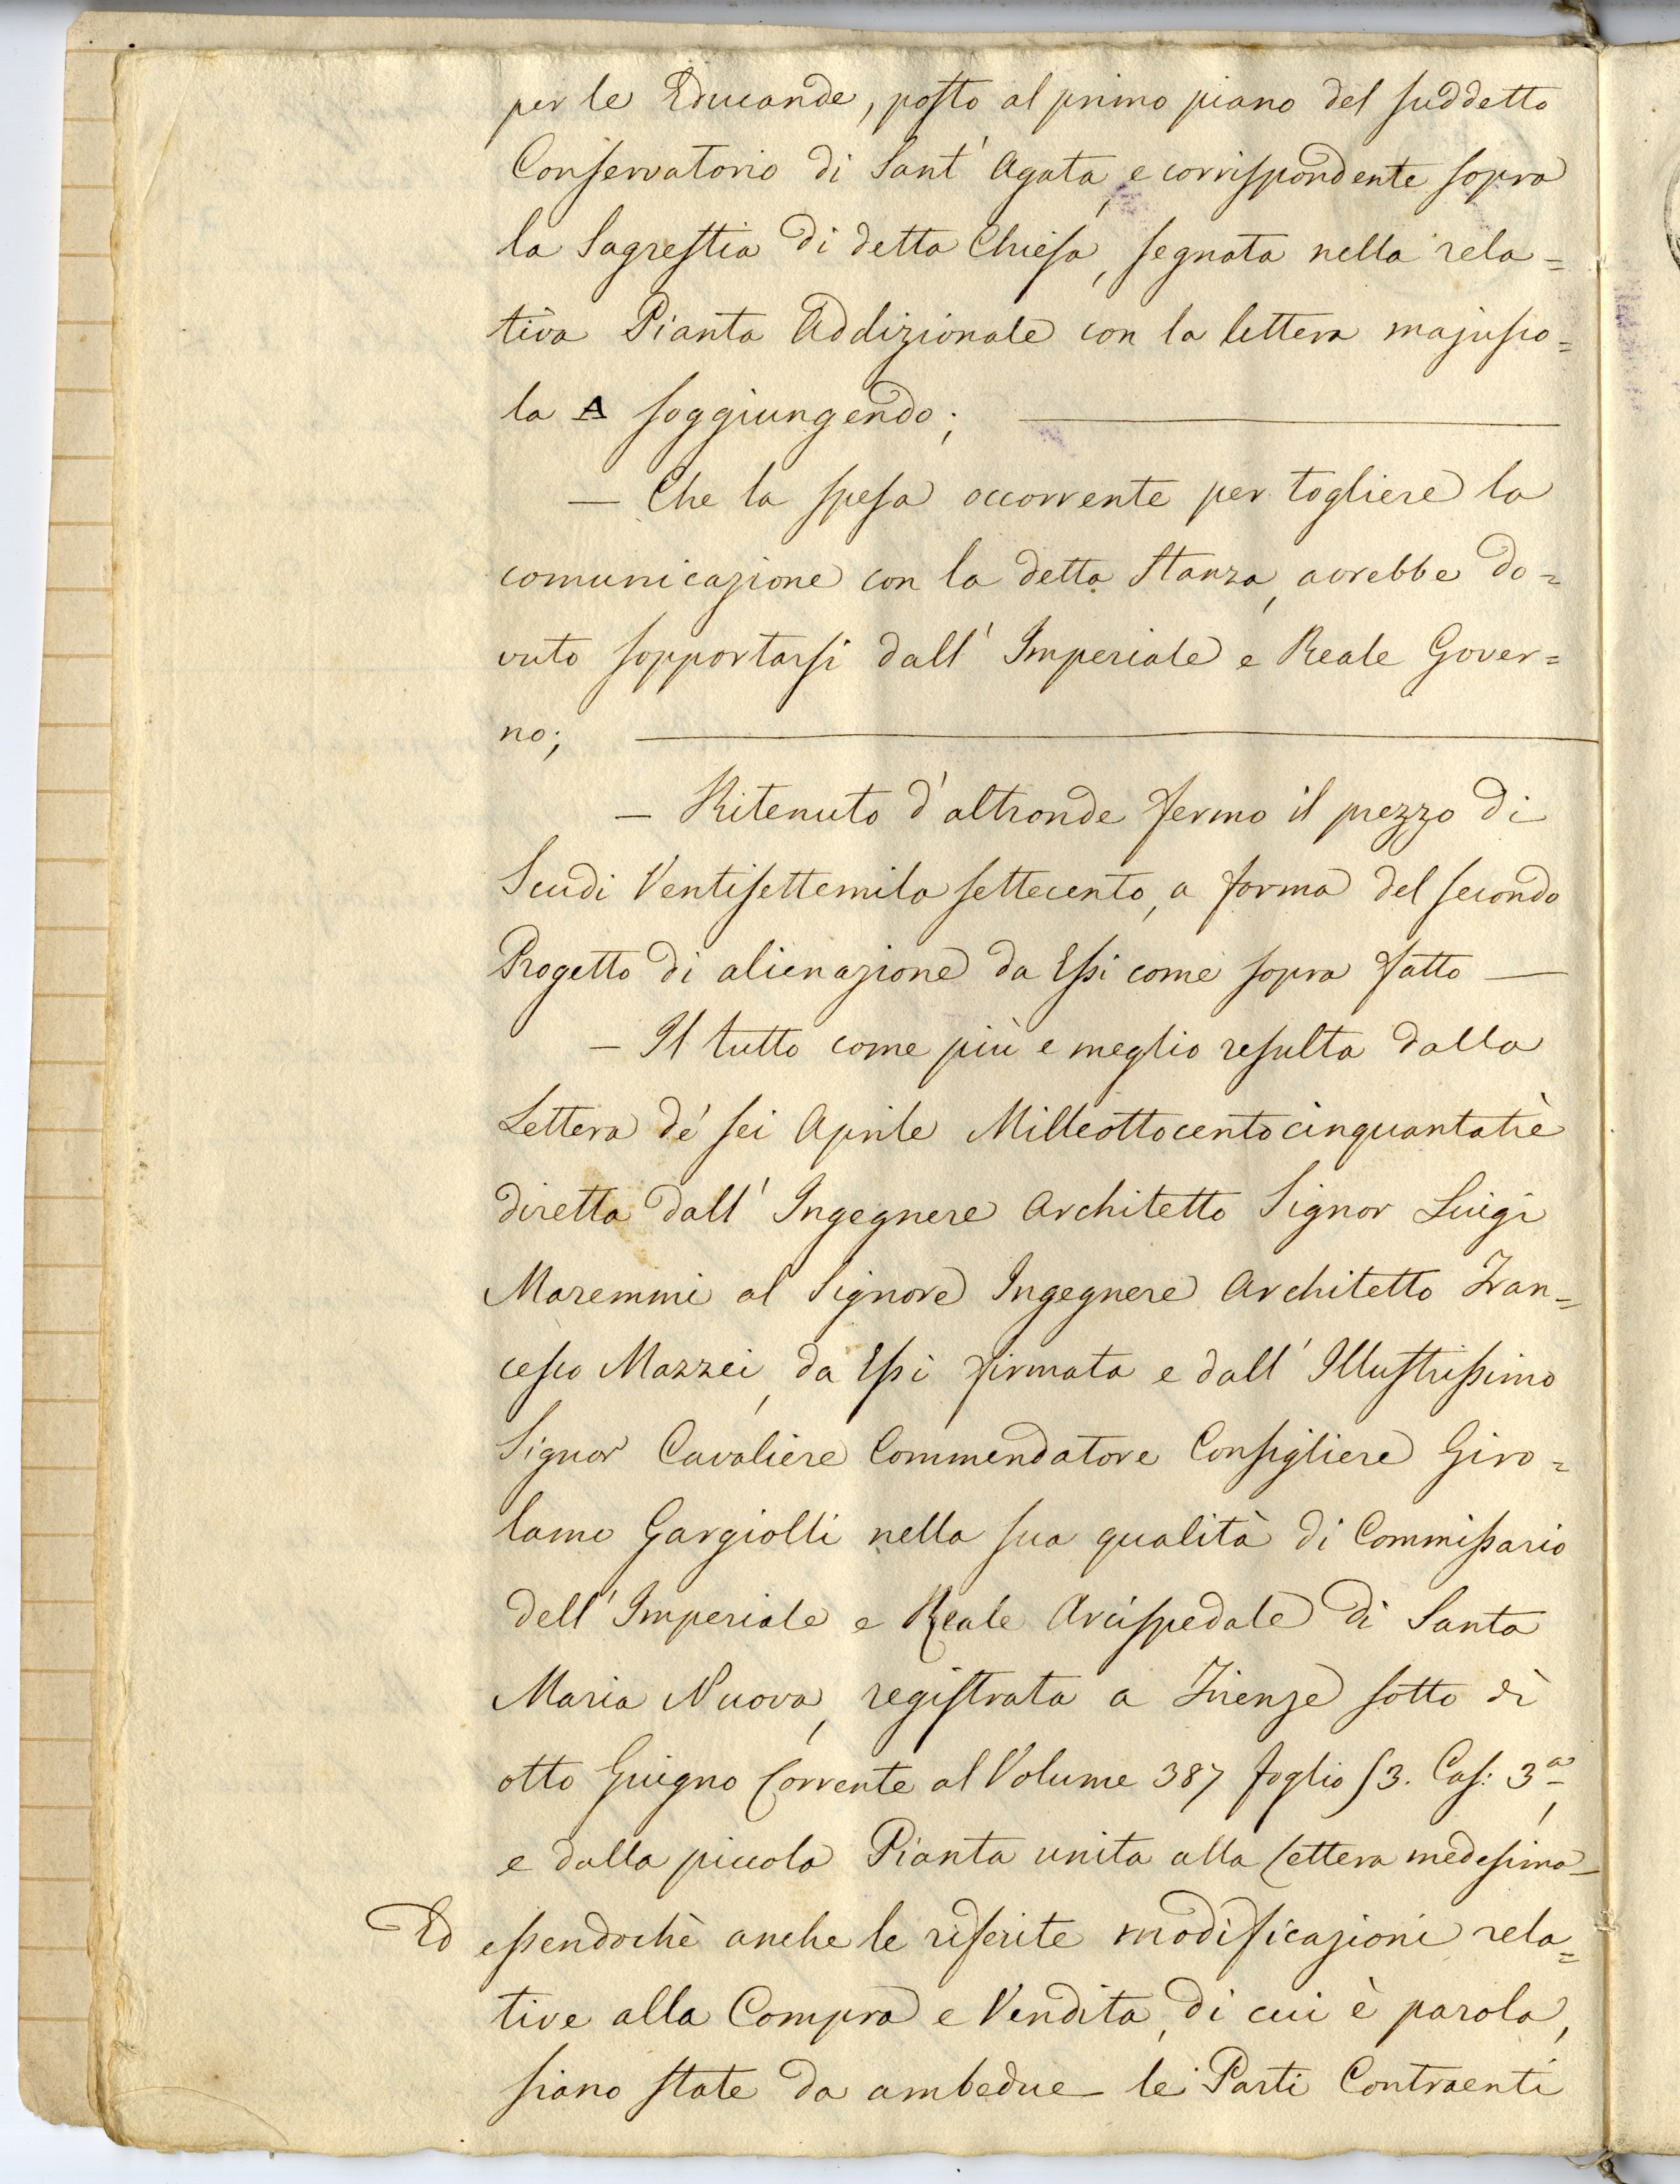 per le Educande, posto al primo piano del suddetto
Conservatorio di Sant' Agata, e corrispondente sopra
la Sagrestia di detta Chiesa, segnata nella rela=
tiva Pianta Addizionale con la lettera majusco=
la A soggiungendo;
— Che la spesa occorrente per togliere la
comunicazione con la detta Stanza, avrebbe do=
vuto sopportarsi dall' Imperiale e Reale Gover=
no;
— Ritenuto d'altronde fermo il prezzo di
Scudi Ventisettemila settecento, a forma del secondo
Progetto di alienazione da Essi come sopra fatto —
— Il tutto come più e meglio resulta dalla
Lettera de' sei Aprile Milleottocentocinquantatrè
diretta dall' Ingegnere Architetto Signor Luigi
Maremmi al Signore Ingegnere Architetto Fran=
cesco Mazzei, da Essi firmata e dall' Illustrissimo
Signor Cavaliere Commendatore Consigliere Giro=
lamo Gargiolli nella sua qualità di Commissario
dell' Imperiale e Reale Arcispedale di Santa
Maria Nuova, registrata a Firenze sotto dì
otto Giugno Corrente al Volume 387 foglio 53. Cas: 3ª,
e dalla piccola Pianta unita alla Lettera medesima —
Ed essendochè anche le riferite modificazioni rela=
tive alla Compra e Vendita, di cui è parola,
siano state da ambedue le Parti Contraenti